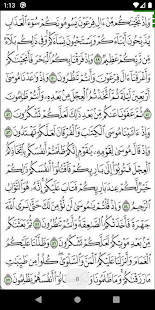 1:13
وَإِذْ نَجَّيْنَٰكُم مِّنْ ءَالِ فِرْعَوْنَ يَسُومُونَكُمْ سُوٓءَ ٱلْعَذَابِ
يُذَبِّحُونَ أَبْنَآءَكُمْ وَيَسْتَحْيُونَ نِسَآءَكُمْ وَفِى ذَٰلِكُم بَلَآءٌ
مِّن رَّبِّكُمْ عَظِيمٌ ٤٩ وَإِذْ فَرَقْنَا بِكُمُ ٱلْبَحْرَ فَأَنجَيْنَٰكُمْ
وَأَغْرَقْنَآ ءَالَ فِرْعَوْنَ وَأَنتُمْ تَنظُرُونَ ٥٠ وَإِذْ وَٰعَدْنَا مُوسَىٰٓ
أَرْبَعِينَ لَيْلَةً ثُمَّ ٱتَّخَذْتُمُ ٱلْعِجْلَ مِنۢ بَعْدِهِۦ وَأَنتُمْ ظَٰلِمُونَ
٥١ ثُمَّ عَفَوْنَا عَنكُم مِّنۢ بَعْدِ ذَٰلِكَ لَعَلَّكُمْ تَشْكُرُونَ ٥٢
وَإِذْ ءَاتَيْنَا مُوسَى ٱلْكِتَٰبَ وَٱلْفُرْقَانَ لَعَلَّكُمْ تَهْتَدُونَ ٥٣
وَإِذْ قَالَ مُوسَىٰ لِقَوْمِهِۦ يَٰقَوْمِ إِنَّكُمْ ظَلَمْتُمْ أَنفُسَكُم بِٱتِّخَاذِكُمُ
ٱلْعِجْلَ فَتُوبُوٓا۟ إِلَىٰ بَارِئِكُمْ فَٱقْتُلُوٓا۟ أَنفُسَكُمْ ذَٰلِكُمْ خَيْرٌ
لَّكُمْ عِندَ بَارِئِكُمْ فَتَابَ عَلَيْكُمْ إِنَّهُۥ هُوَ ٱلتَّوَّابُ ٱلرَّحِيمُ
٥٤ وَإِذْ قُلْتُمْ يَٰمُوسَىٰ لَن نُّؤْمِنَ لَكَ حَتَّىٰ نَرَى ٱللَّهَ
جَهْرَةً فَأَخَذَتْكُمُ ٱلصَّٰعِقَةُ وَأَنتُمْ تَنظُرُونَ ٥٥ ثُمَّ بَعَثْنَٰكُم
مِّنۢ بَعْدِ مَوْتِكُمْ لَعَلَّكُمْ تَشْكُرُونَ ٥٦ وَظَلَّلْنَا عَلَيْكُمُ
ٱلْغَمَامَ وَأَنزَلْنَا عَلَيْكُمُ ٱلْمَنَّ وَٱلسَّلْوَىٰ كُلُوا۟ مِن طَيِّبَٰتِ
مَا رَزَقْنَٰكُمْ وَمَا ظَلَمُونَا وَلَٰكِن كَانُوٓا۟ أَنفُسَهُمْ يَظْلِمُونَ ٥٧